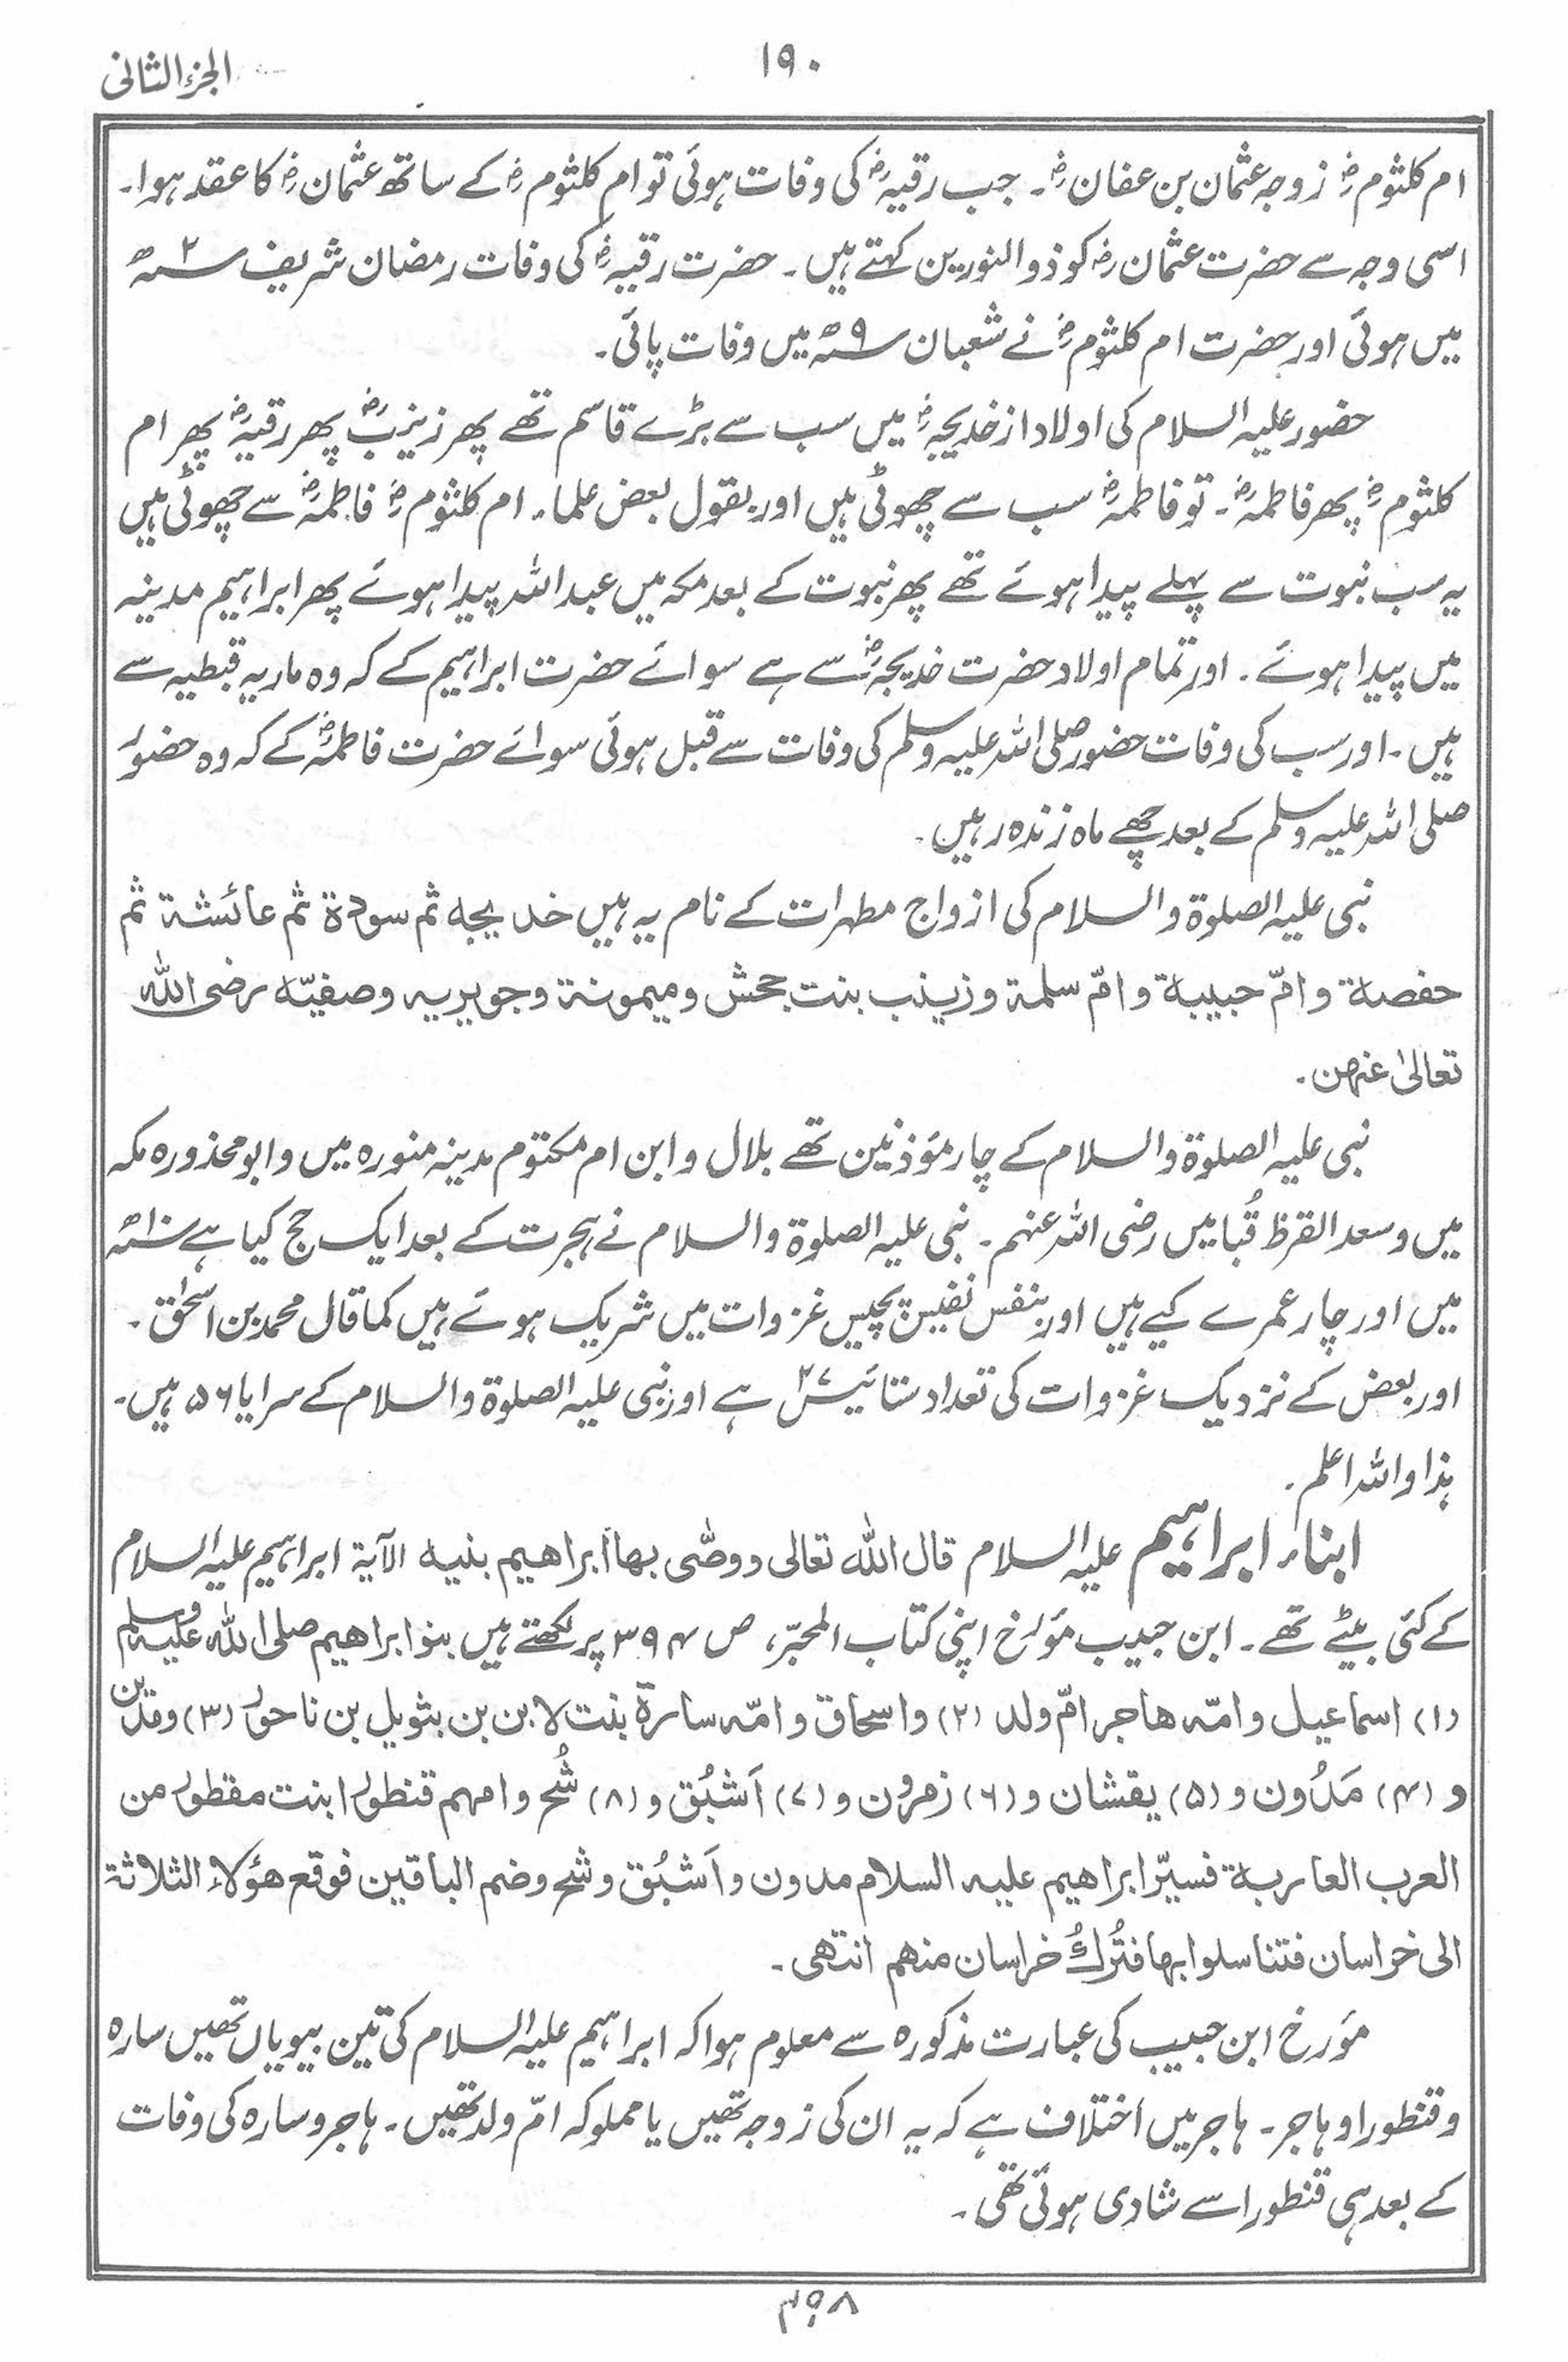 الجزء الثانی
۱۹۰
ام کلثومؓ زوجہ عثمان بن عفانؓ۔ جب رقیہؓ کی وفات ہوئی تو ام کلثومؓ کے ساتھ عثمانؓ کا عقد ہوا۔
اسی وجہ سے حضرت عثمانؓ کو ذوالنورین کہتے ہیں۔ حضرت رقیہؓ کی وفات رمضان شریف ۲ھ
میں ہوئی اور حضرت ام کلثومؓ نے شعبان ۹ھ میں وفات پائی۔
حضور علیہ السلام کی اولاد از خدیجہؓ میں سب سے بڑے قاسم تھے پھر زینبؓ پھر رقیہؓ پھر ام
کلثومؓ پھر فاطمہؓ۔ تو فاطمہؓ سب سے چھوٹی ہیں اور بقول بعض علماء۔ ام کلثومؓ فاطمہؓ سے چھوٹی ہیں
یہ سب نبوت سے پہلے پیدا ہوئے تھے پھر نبوت کے بعد مکہ میں عبداللہ پیدا ہوئے پھر ابراہیم مدینہ
میں پیدا ہوئے۔ اور تمام اولاد حضرت خدیجہؓ سے ہے سوائے حضرت ابراہیم کے کہ وہ ماریہ قبطیہ سے
ہیں۔ اور سب کی وفات حضور صلی اللہ علیہ وسلم کی وفات سے قبل ہوئی سوائے حضرت فاطمہؓ کے کہ وہ حضور
صلی اللہ علیہ وسلم کے بعد چھے ماہ زندہ رہیں۔
نبی علیہ الصلوۃ والسلام کی ازواج مطہرات کے نام یہ ہیں خدیجہ ثم سودة ثم عائشة ثم
حفصة وامّ حبیبة وامّ سلمة وزینب بنت جحش ومیمونة وجویریہ وصفیّہ رضی اللہ
تعالیٰ عنہن۔
نبی علیہ الصلوۃ والسلام کے چار مؤذنین تھے بلال و ابن ام مکتوم مدینہ منورہ میں و ابو محذورہ مکہ
میں و سعد القرظ قُبا میں رضی اللہ عنہم۔ نبی علیہ الصلوۃ والسلام نے ہجرت کے بعد ایک حج کیا ہے ۱۰ھ
میں اور چار عمرے کیے ہیں اور بنفس نفیس پچیس غزوات میں شریک ہوئے ہیں کما قال محمد بن اسحٰق۔
اور بعض کے نزدیک غزوات کی تعداد ستائیس ۲۷ ہے اور نبی علیہ الصلوۃ والسلام کے سرایا ۵۶ ہیں۔
ہذا واللہ اعلم۔
ابناء ابراہیم علیہ السلام قال اللہ تعالی ووصّی بھا ابراھیم بنیہ الآیة ابراہیم علیہ السلام
کے کئی بیٹے تھے۔ ابن حبیب مؤرخ اپنی کتاب المحبّر، ص ۳۹۴ پر لکھتے ہیں بنو ابراھیم صلی اللہ علیہ وسلم
(۱) اسماعیل وامّہ ھاجر امّ ولد (۲) واسحاق وامّہ سارة بنت لابن بن بثویل بن ناحور (۳) ومدین
و (۴) مَدُون و (۵) یقشان و (۶) زمرون و (۷) اَشبُق و (۸) شُح وامھم قنطورا بنت مقطور من
العرب العاربة فسیّر ابراھیم علیہ السلام مدون واَشبُق وشح وضم الباقین فوقع ھؤلاء الثلاثة
الی خراسان فتناسلوا بھا فتُرکُ خراسان منھم انتھی۔
مؤرخ ابن حبیب کی عبارت مذکورہ سے معلوم ہوا کہ ابراہیم علیہ السلام کی تین بیویاں تھیں سارہ
وقنطورا وہاجر۔ ہاجر میں اختلاف ہے کہ یہ ان کی زوجہ تھیں یا مملوکہ امّ ولد تھیں۔ ہاجر وسارہ کی وفات
کے بعد ہی قنطورا سے شادی ہوئی تھی۔
۴۹۸